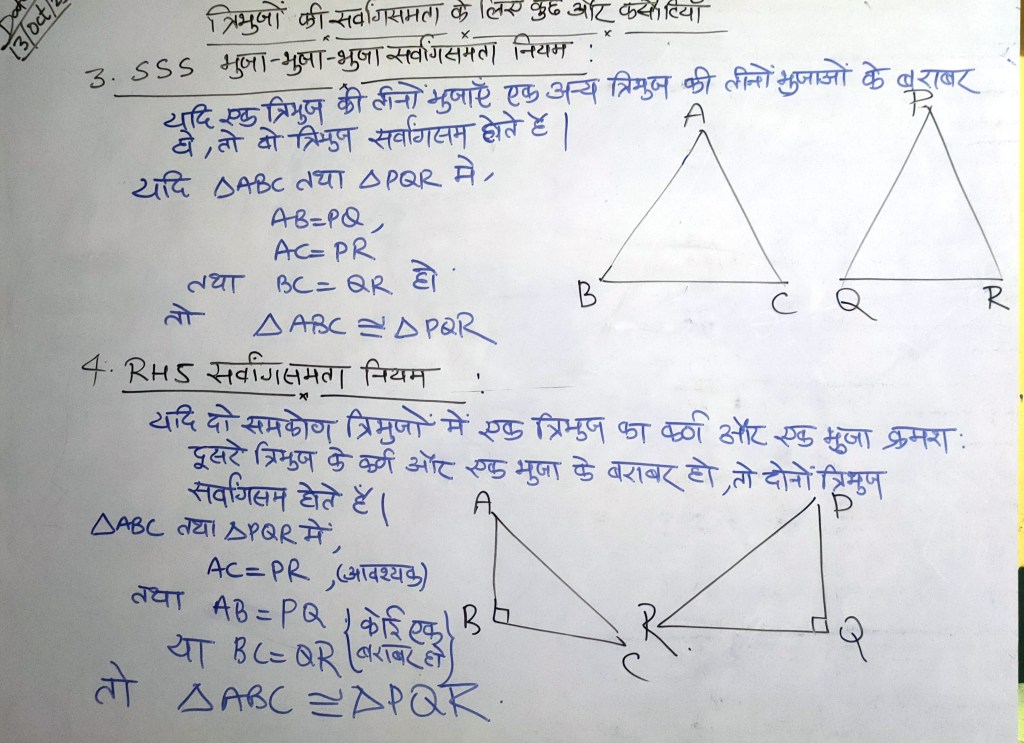 3/Oct/2
त्रिभुजों की सर्वांगसमता के लिए कुछ और कसौटियाँ
3. SSS भुजा-भुजा-भुजा सर्वांगसमता नियम :
यदि एक त्रिभुज की तीनों भुजाएँ एक अन्य त्रिभुज की तीनों भुजाओं के बराबर
हो, तो वो त्रिभुज सर्वांगसम होते हैं।
यदि △ABC तथा △PQR में,
AB=PQ,
AC= PR
तथा BC= QR हो
तो △ABC ≅ △PQR
A
B
C
P
Q
R
4. RHS सर्वांगसमता नियम :
यदि दो समकोण त्रिभुजों में एक त्रिभुज का कर्ण और एक भुजा क्रमश:
दूसरे त्रिभुज के कर्ण और एक भुजा के बराबर हो, तो दोनों त्रिभुज
सर्वांगसम होते हैं।
△ABC तथा △PQR में,
AC= PR, (आवश्यक)
तथा AB=PQ {कोई एक
या BC=QR बराबर हो}
तो △ABC ≅ △PQR.
A
B
C
P
R
Q